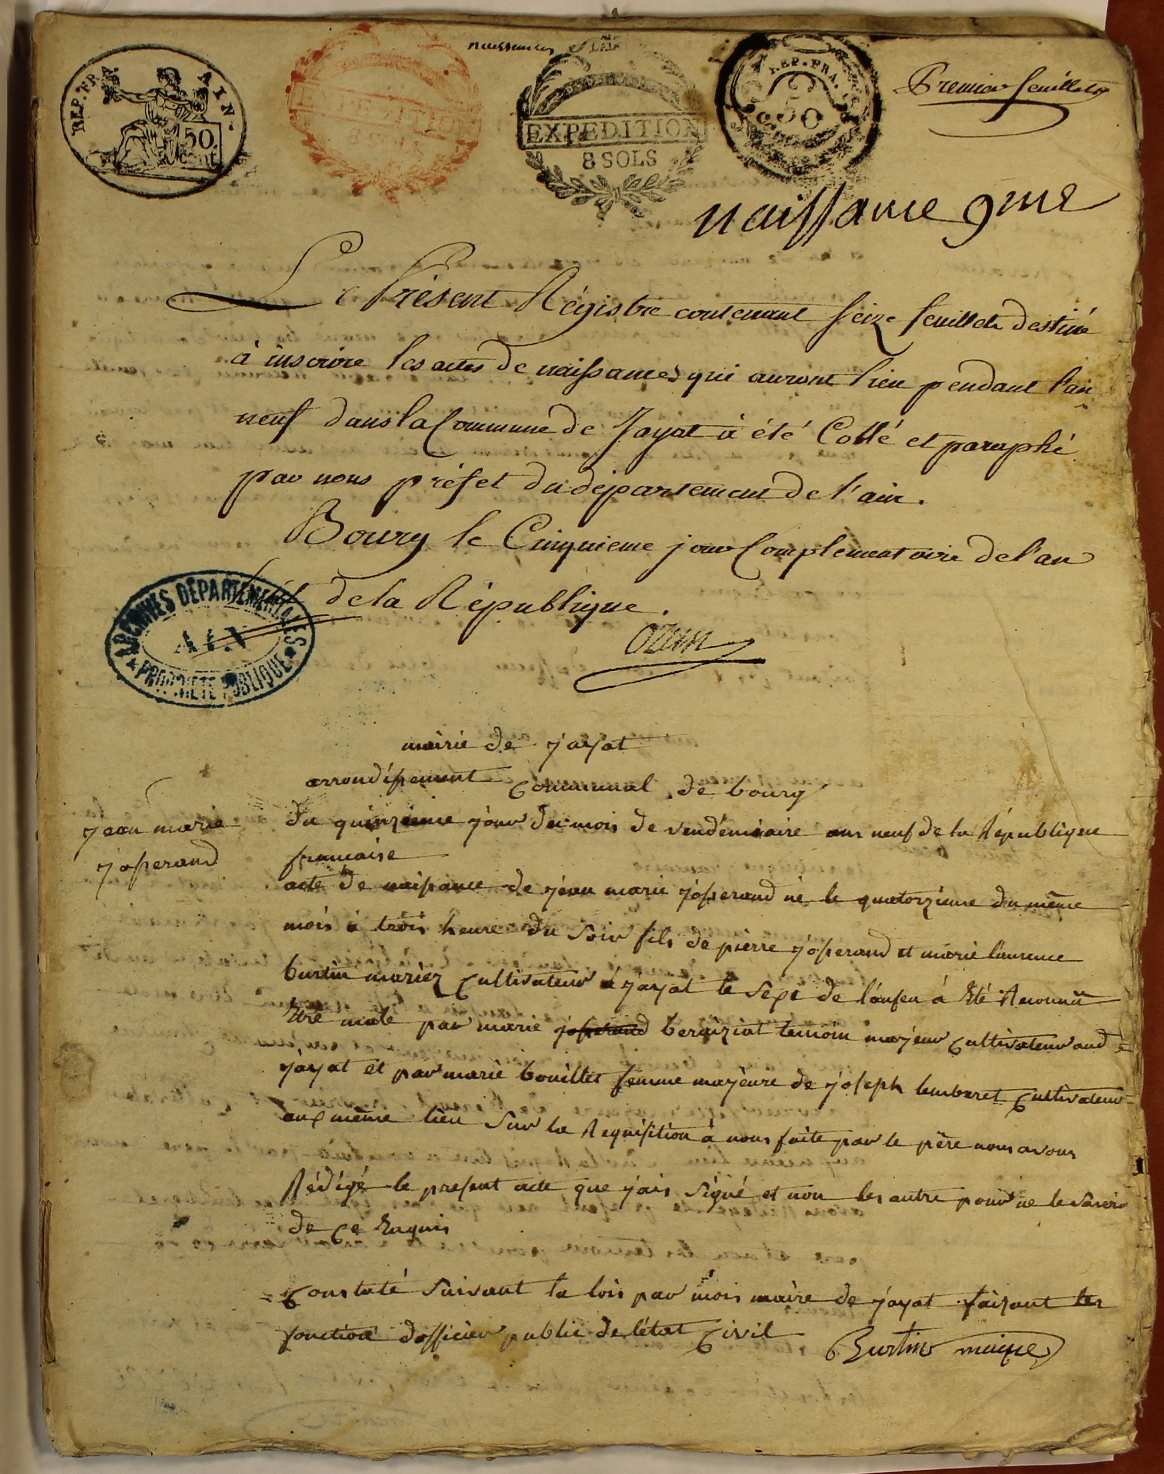 naissances
REP. FRA. AIN.
50 cent
EXPEDITION
8 SOLS
REP. FRA.
50
Premier feuillet
naissance 9me
Le Présent Régistre contenant seize feuillets destiné
à inscrire les actes de naissances qui auront lieu pendant l'an
neuf dans la Commune de Jayat à été Cotté et paraphé
par nous préfet du département de l'ain.
Bourg le Cinquieme jour Complementaire de l'an
huit de la République.
Ozun
ARCHIVES DÉPARTEMENTALES
AIN
PROPRIÉTÉ PUBLIQUE
mairie de jayat
arrondissement Communal de bourg
jean marie
josserand
du quinzieme jour du mois de vendémiaire ans neuf de la République
francaise
acte de naissance de jean marie josserand né le quatorzieme du même
mois à trois heure du soir fils de pierre josserand et marie laurence
burtin mariez Cultivateur à jayat le sexe de lanfen à Eté Reconnu
Etre male par marie josserand berniziat temoin majeur Cultivateur aud
jayat et par marie bouillet femme majeure de joseph lembert Cultivateur
au même lieu sur la Requisition à nous faite par le père nous avons
Rédigé le present acte que jais signé et non les autre pour ne le savoir
de Ce Enquis
Constaté suivant la lois par mois maire de jayat faizant les
fonction dofficier public de létat Civil
Burtin maire